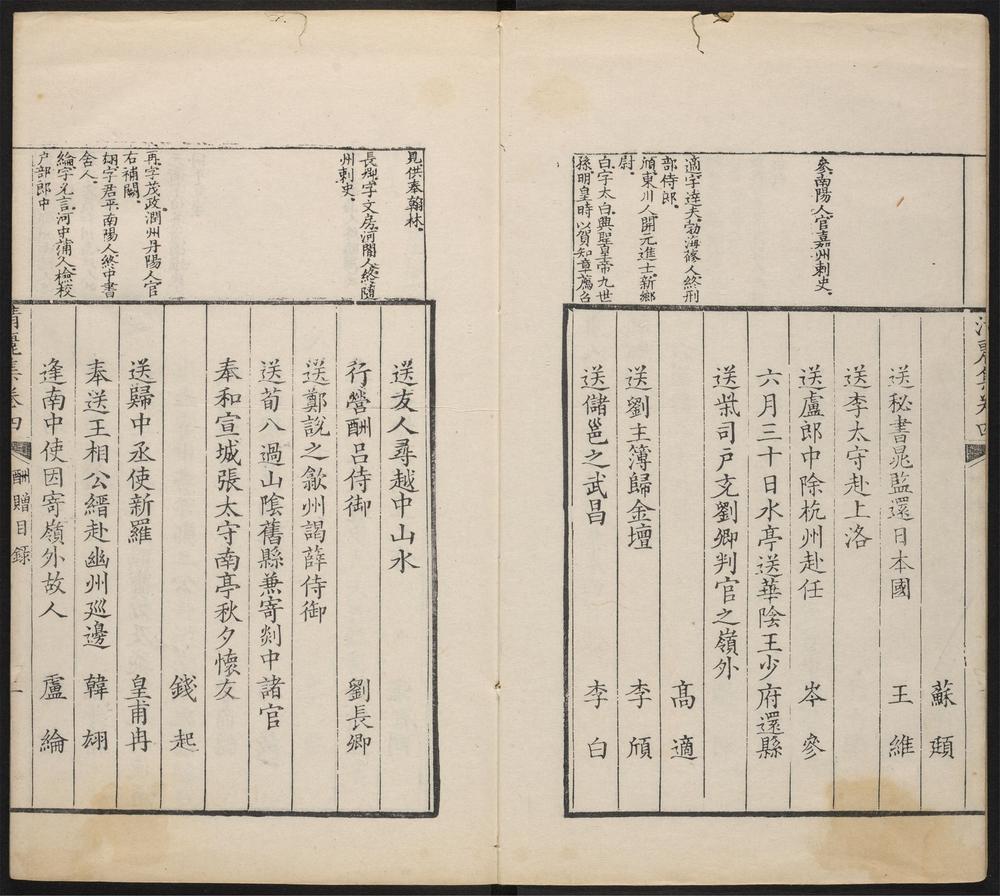 參南陽人官嘉州刺史
適字達夫勃海蓨人終刑
部侍郎
頎東川人開元進士新鄉
尉
白字太白興聖皇帝九世
孫明皇時以賀知章薦召
蘇頲
送秘書晁監還日本國 王維
送李太守赴上洛
送盧郎中除杭州赴任 岑參
六月三十日水亭送華陰王少府還縣
送柴司戶充劉卿判官之嶺外
高適
送劉主簿歸金壇 李頎
送儲邕之武昌 李白
見供奉翰林
長卿字文房河間人終隨
州刺史
冉字茂政潤州丹陽人官
右補闕
翃字君平南陽人終中書
舍人
綸字允言河中蒲人檢校
戶部郎中
送友人尋越中山水
行營酬呂侍御 劉長卿
送鄭說之歙州謁薛侍御
送荀八過山陰舊縣兼寄剡中諸官
奉和宣城張太守南亭秋夕懷友
錢起
送歸中丞使新羅 皇甫冉
奉送王相公縉赴幽州巡邊 韓翃
逢南中使因寄嶺外故人 盧綸
清麗集卷四 酬贈目錄 二